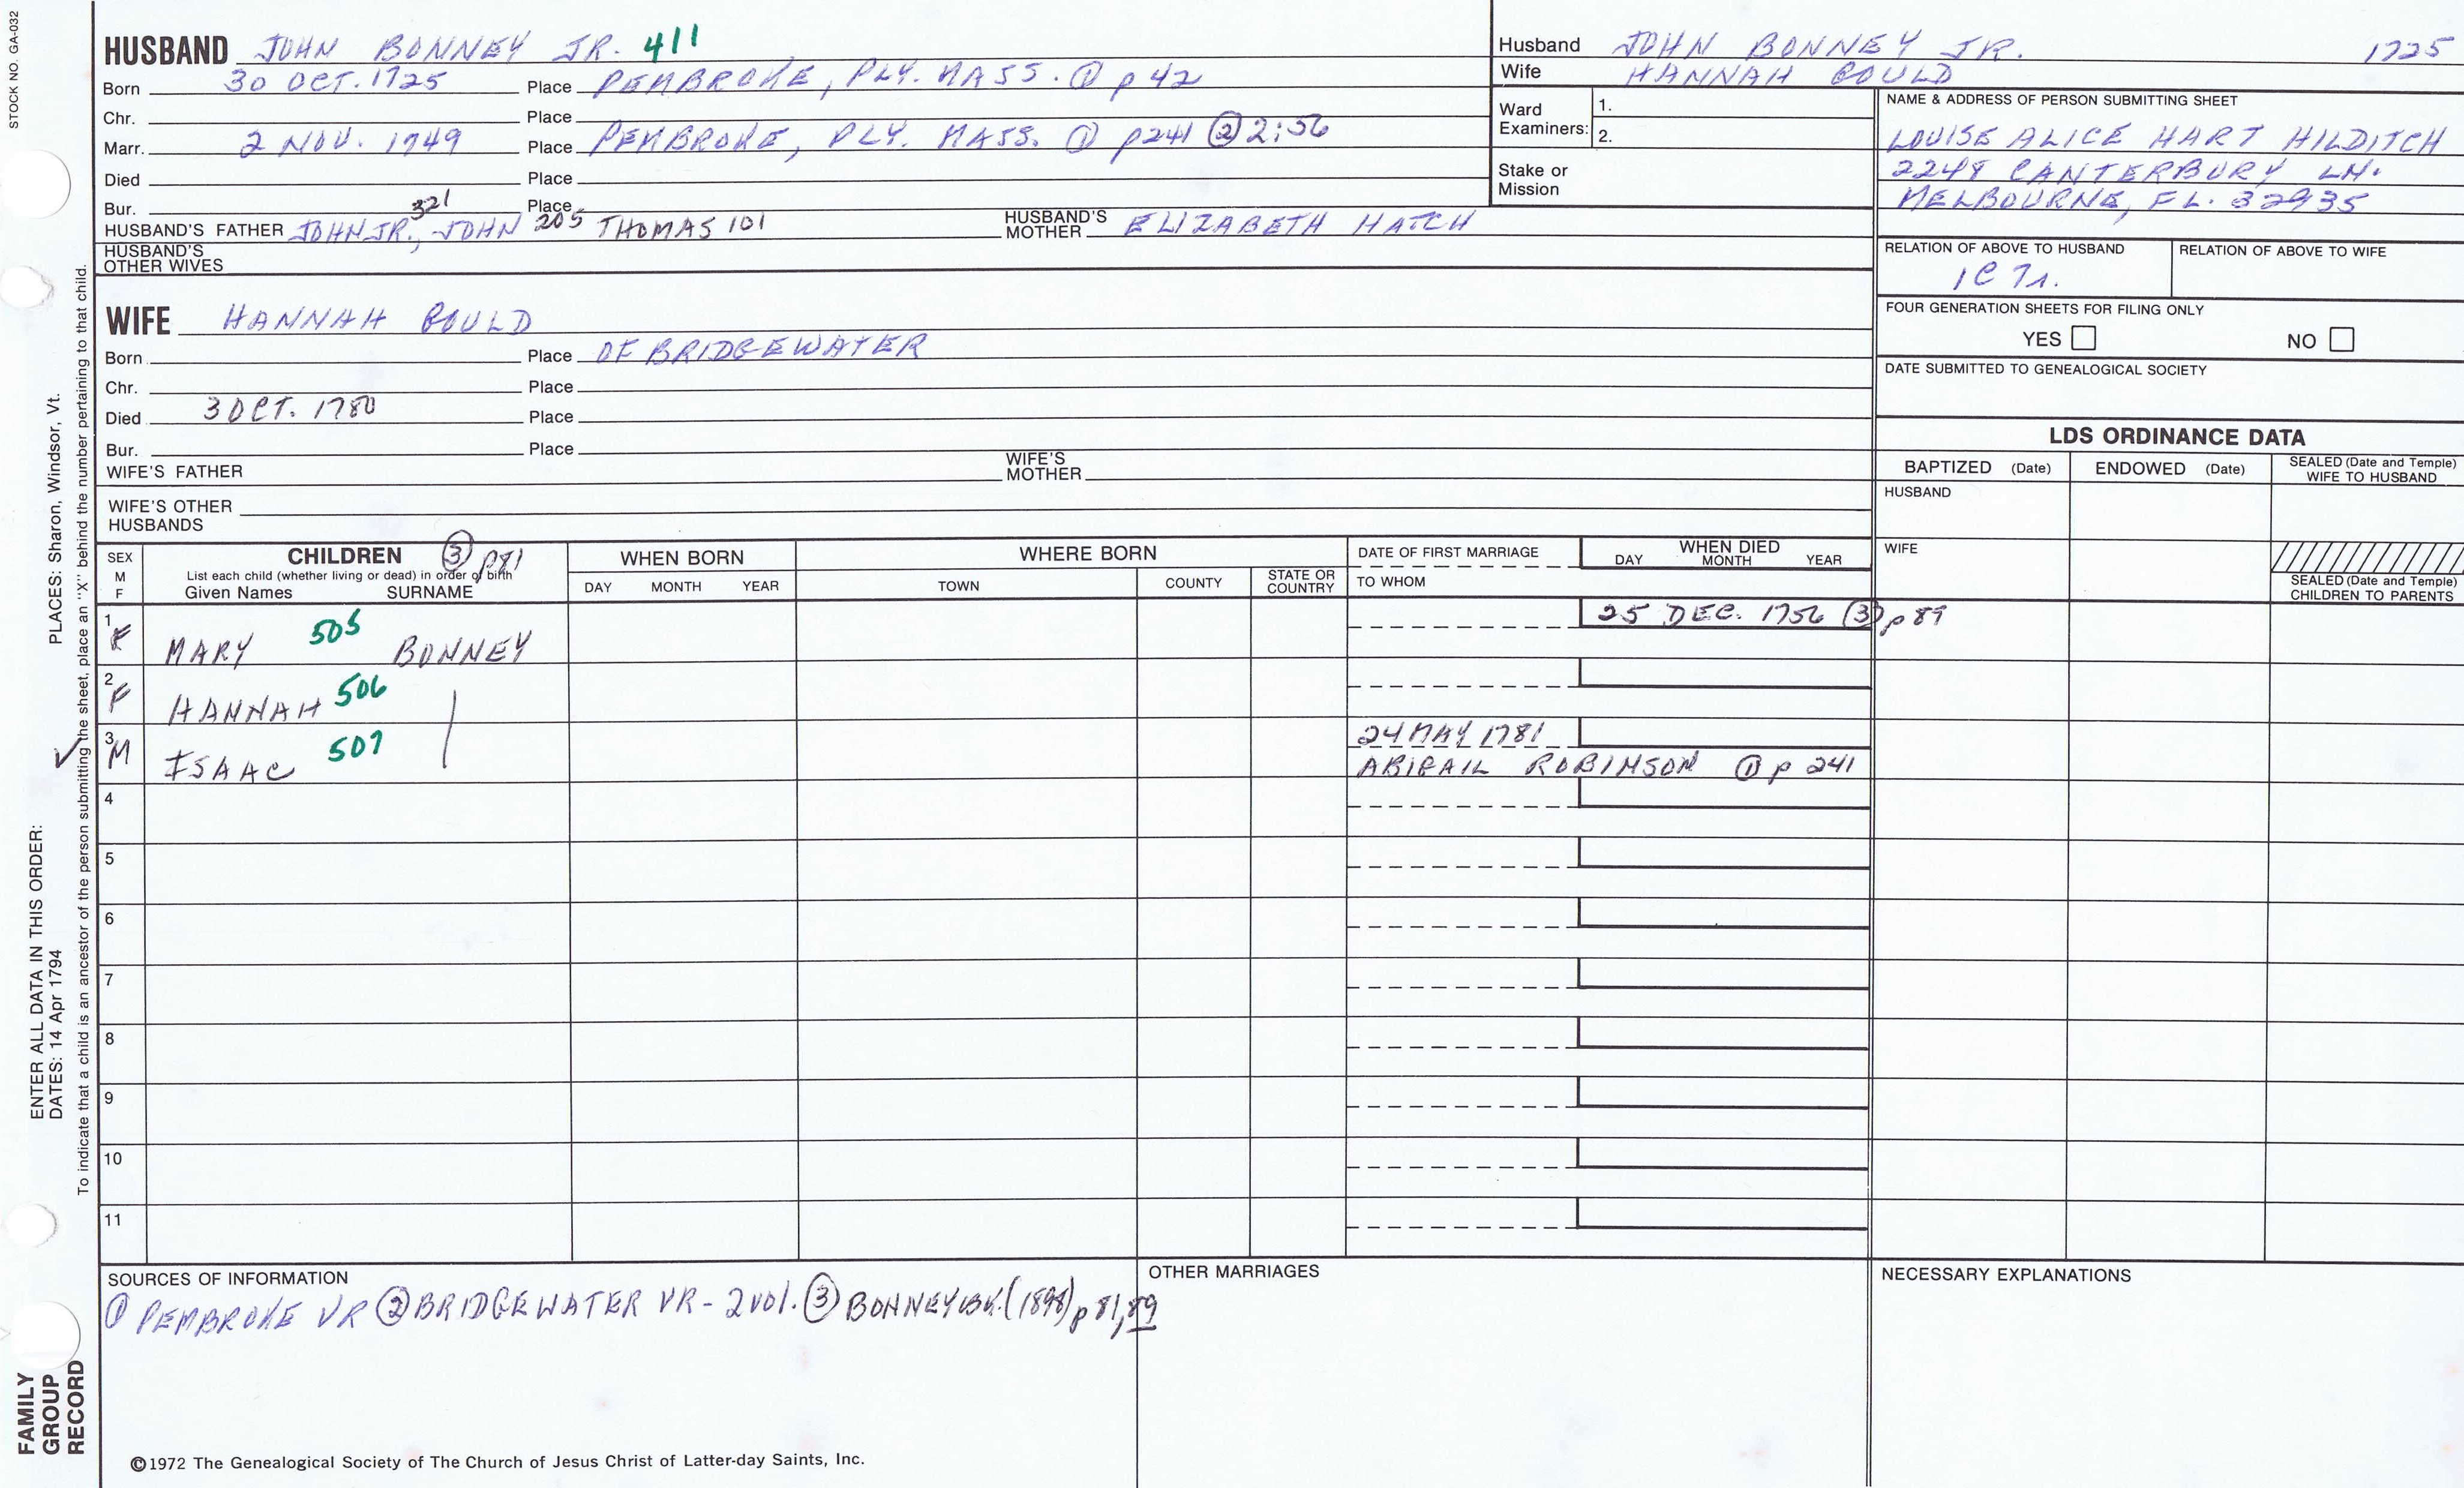 STOCK NO. GA-032
HUSBAND JOHN BONNEY JR. 411
Born 30 OCT. 1725 Place PEMBROKE, PLY. MASS. ① p 42
Chr. Place
Marr. 2 NOV. 1749 Place PEMBROKE, PLY. MASS. ① p241 ② 2:56
Died Place
Bur. Place
HUSBAND'S FATHER JOHN JR., 321 JOHN 205 THOMAS 101 HUSBAND'S MOTHER ELIZABETH HATCH
HUSBAND'S OTHER WIVES
WIFE HANNAH GOULD
Born Place OF BRIDGEWATER
Chr. Place
Died 3 OCT. 1780 Place
Bur. Place
WIFE'S FATHER WIFE'S MOTHER
WIFE'S OTHER HUSBANDS
Husband JOHN BONNEY JR. 1725
Wife HANNAH GOULD
Ward Examiners: 1.
2.
Stake or Mission
NAME & ADDRESS OF PERSON SUBMITTING SHEET
LOUISE ALICE HART HILDITCH
2248 CANTERBURY LN.
MELBOURNE, FL. 32935
RELATION OF ABOVE TO HUSBAND RELATION OF ABOVE TO WIFE
1C 7r.
FOUR GENERATION SHEETS FOR FILING ONLY
YES NO
DATE SUBMITTED TO GENEALOGICAL SOCIETY
LDS ORDINANCE DATA
BAPTIZED (Date) ENDOWED (Date) SEALED (Date and Temple) WIFE TO HUSBAND
HUSBAND
WIFE
SEALED (Date and Temple) CHILDREN TO PARENTS
SEX M F
CHILDREN ③ p81
List each child (whether living or dead) in order of birth
Given Names SURNAME
WHEN BORN
DAY MONTH YEAR
WHERE BORN
TOWN COUNTY STATE OR COUNTRY
DATE OF FIRST MARRIAGE
TO WHOM
WHEN DIED
DAY MONTH YEAR
1 F MARY 505 BONNEY 25 DEC. 1756 ③ p89
2 F HANNAH 506
3 M ISAAC 507 24 MAY 1781
ABIGAIL ROBINSON ① p 241
4
5
6
7
8
9
10
11
SOURCES OF INFORMATION
① PEMBROKE VR ② BRIDGEWATER VR - 2 vol. ③ BONNEY BK. (1898) p 81, 89
OTHER MARRIAGES
NECESSARY EXPLANATIONS
©1972 The Genealogical Society of The Church of Jesus Christ of Latter-day Saints, Inc.
FAMILY
GROUP
RECORD
ENTER ALL DATA IN THIS ORDER:
DATES: 14 Apr 1794 PLACES: Sharon, Windsor, Vt.
To indicate that a child is an ancestor of the person submitting the sheet, place an "X" behind the number pertaining to that child.